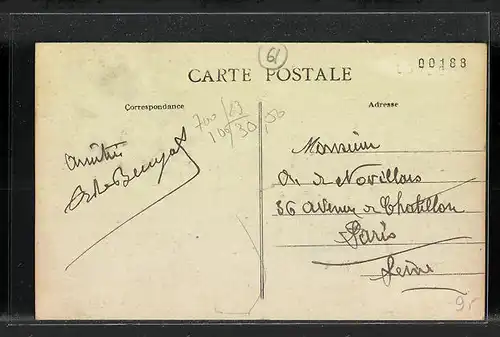 61
00188
CARTE POSTALE
Correspondance
Adresse
Amitiés
Monsieur
de Novillars
36 Avenue de Chatillon
Paris
Seine